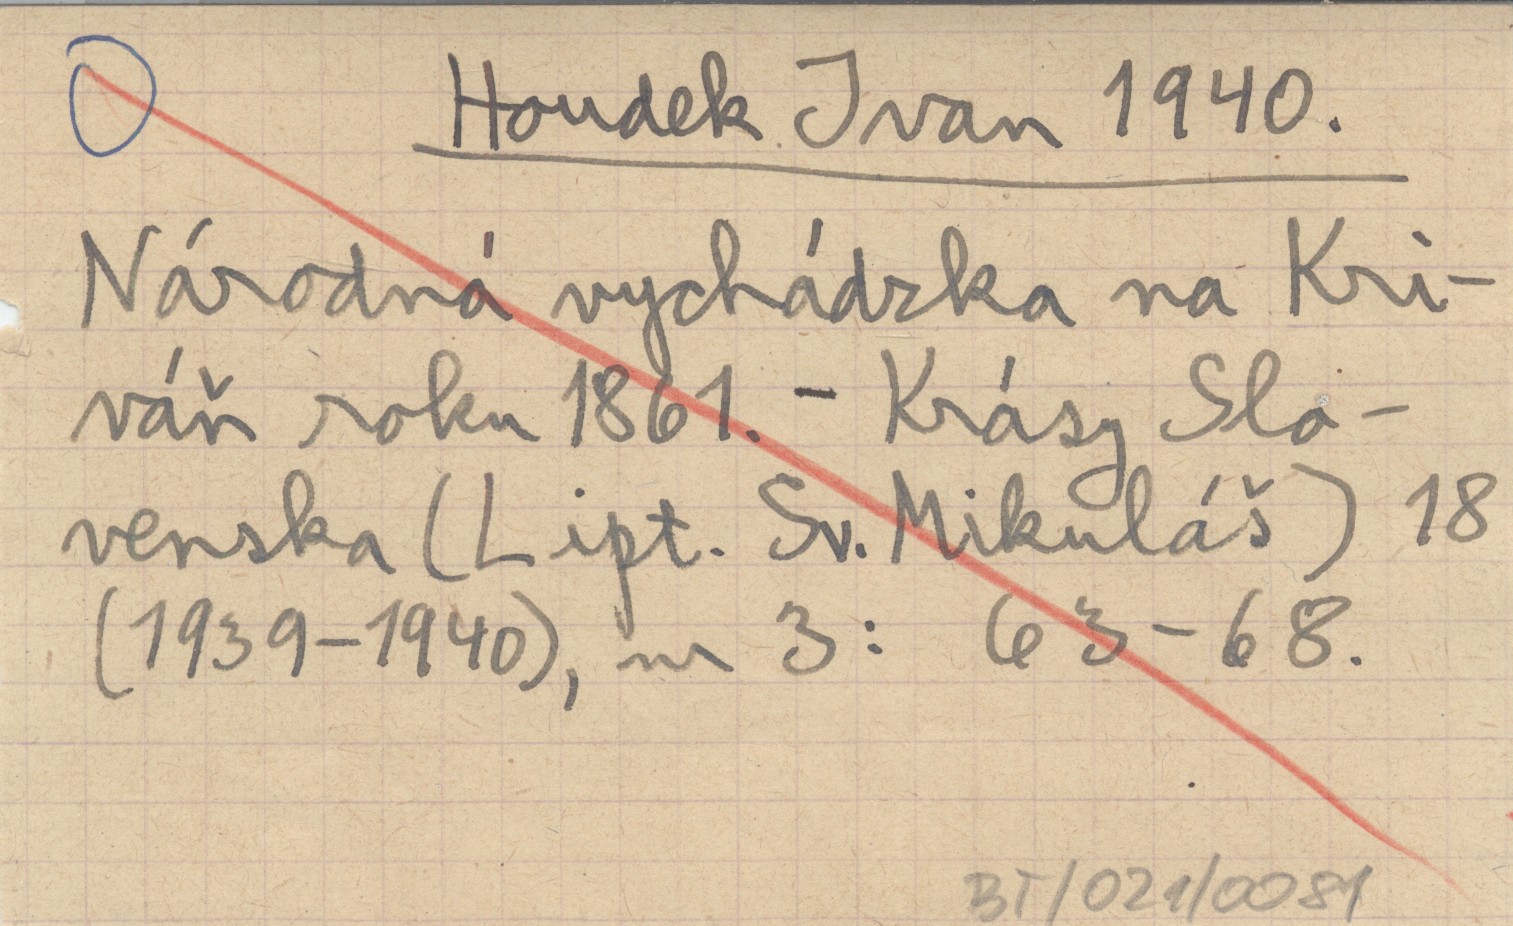 Houdek Ivan 1940.
Národná vychádzka na Kri-
váň roku 1861. - Krásy Slo-
venska (Lipt. Sv. Mikuláš) 18
(1939-1940), nr 3: 63-68.
BT/021/0081